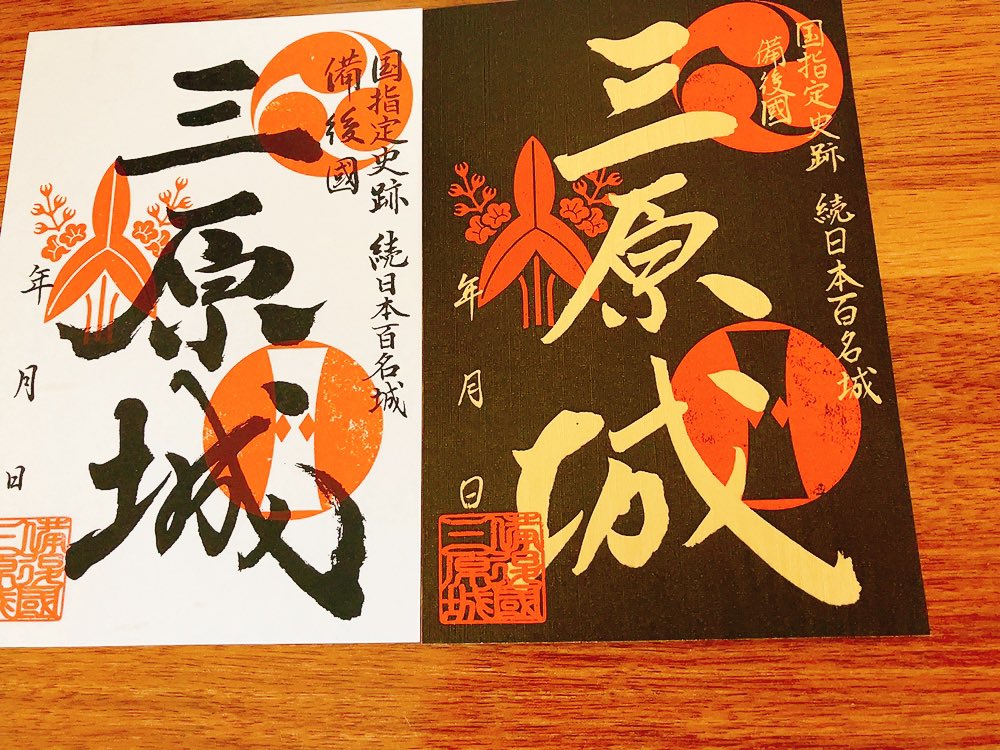 国指定史跡 続日本百名城
備後國
三原城
年 月 日
備後國
三原城
国指定史跡 続日本百名城
備後國
三原城
年 月 日
備後國
三原城